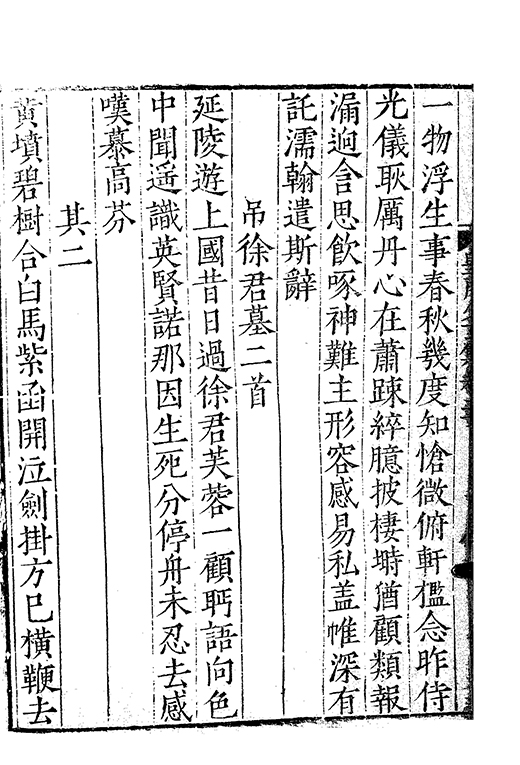 一物浮生事春秋幾度知愴微俯軒檻念昨侍
光儀耿厲丹心在蕭踈綷臆披棲塒猶顧類報
漏逈含思飲啄神難主形容感易私盖帷深有
託濡翰遣斯辭
弔徐君墓二首
延陵遊上國昔日過徐君芙蓉一顧眄語向色
中聞遥識英賢諾那因生死分停舟未忍去感
嘆慕高芬
其二
黄墳碧樹合白馬紫函開泣劍掛方已横鞭去